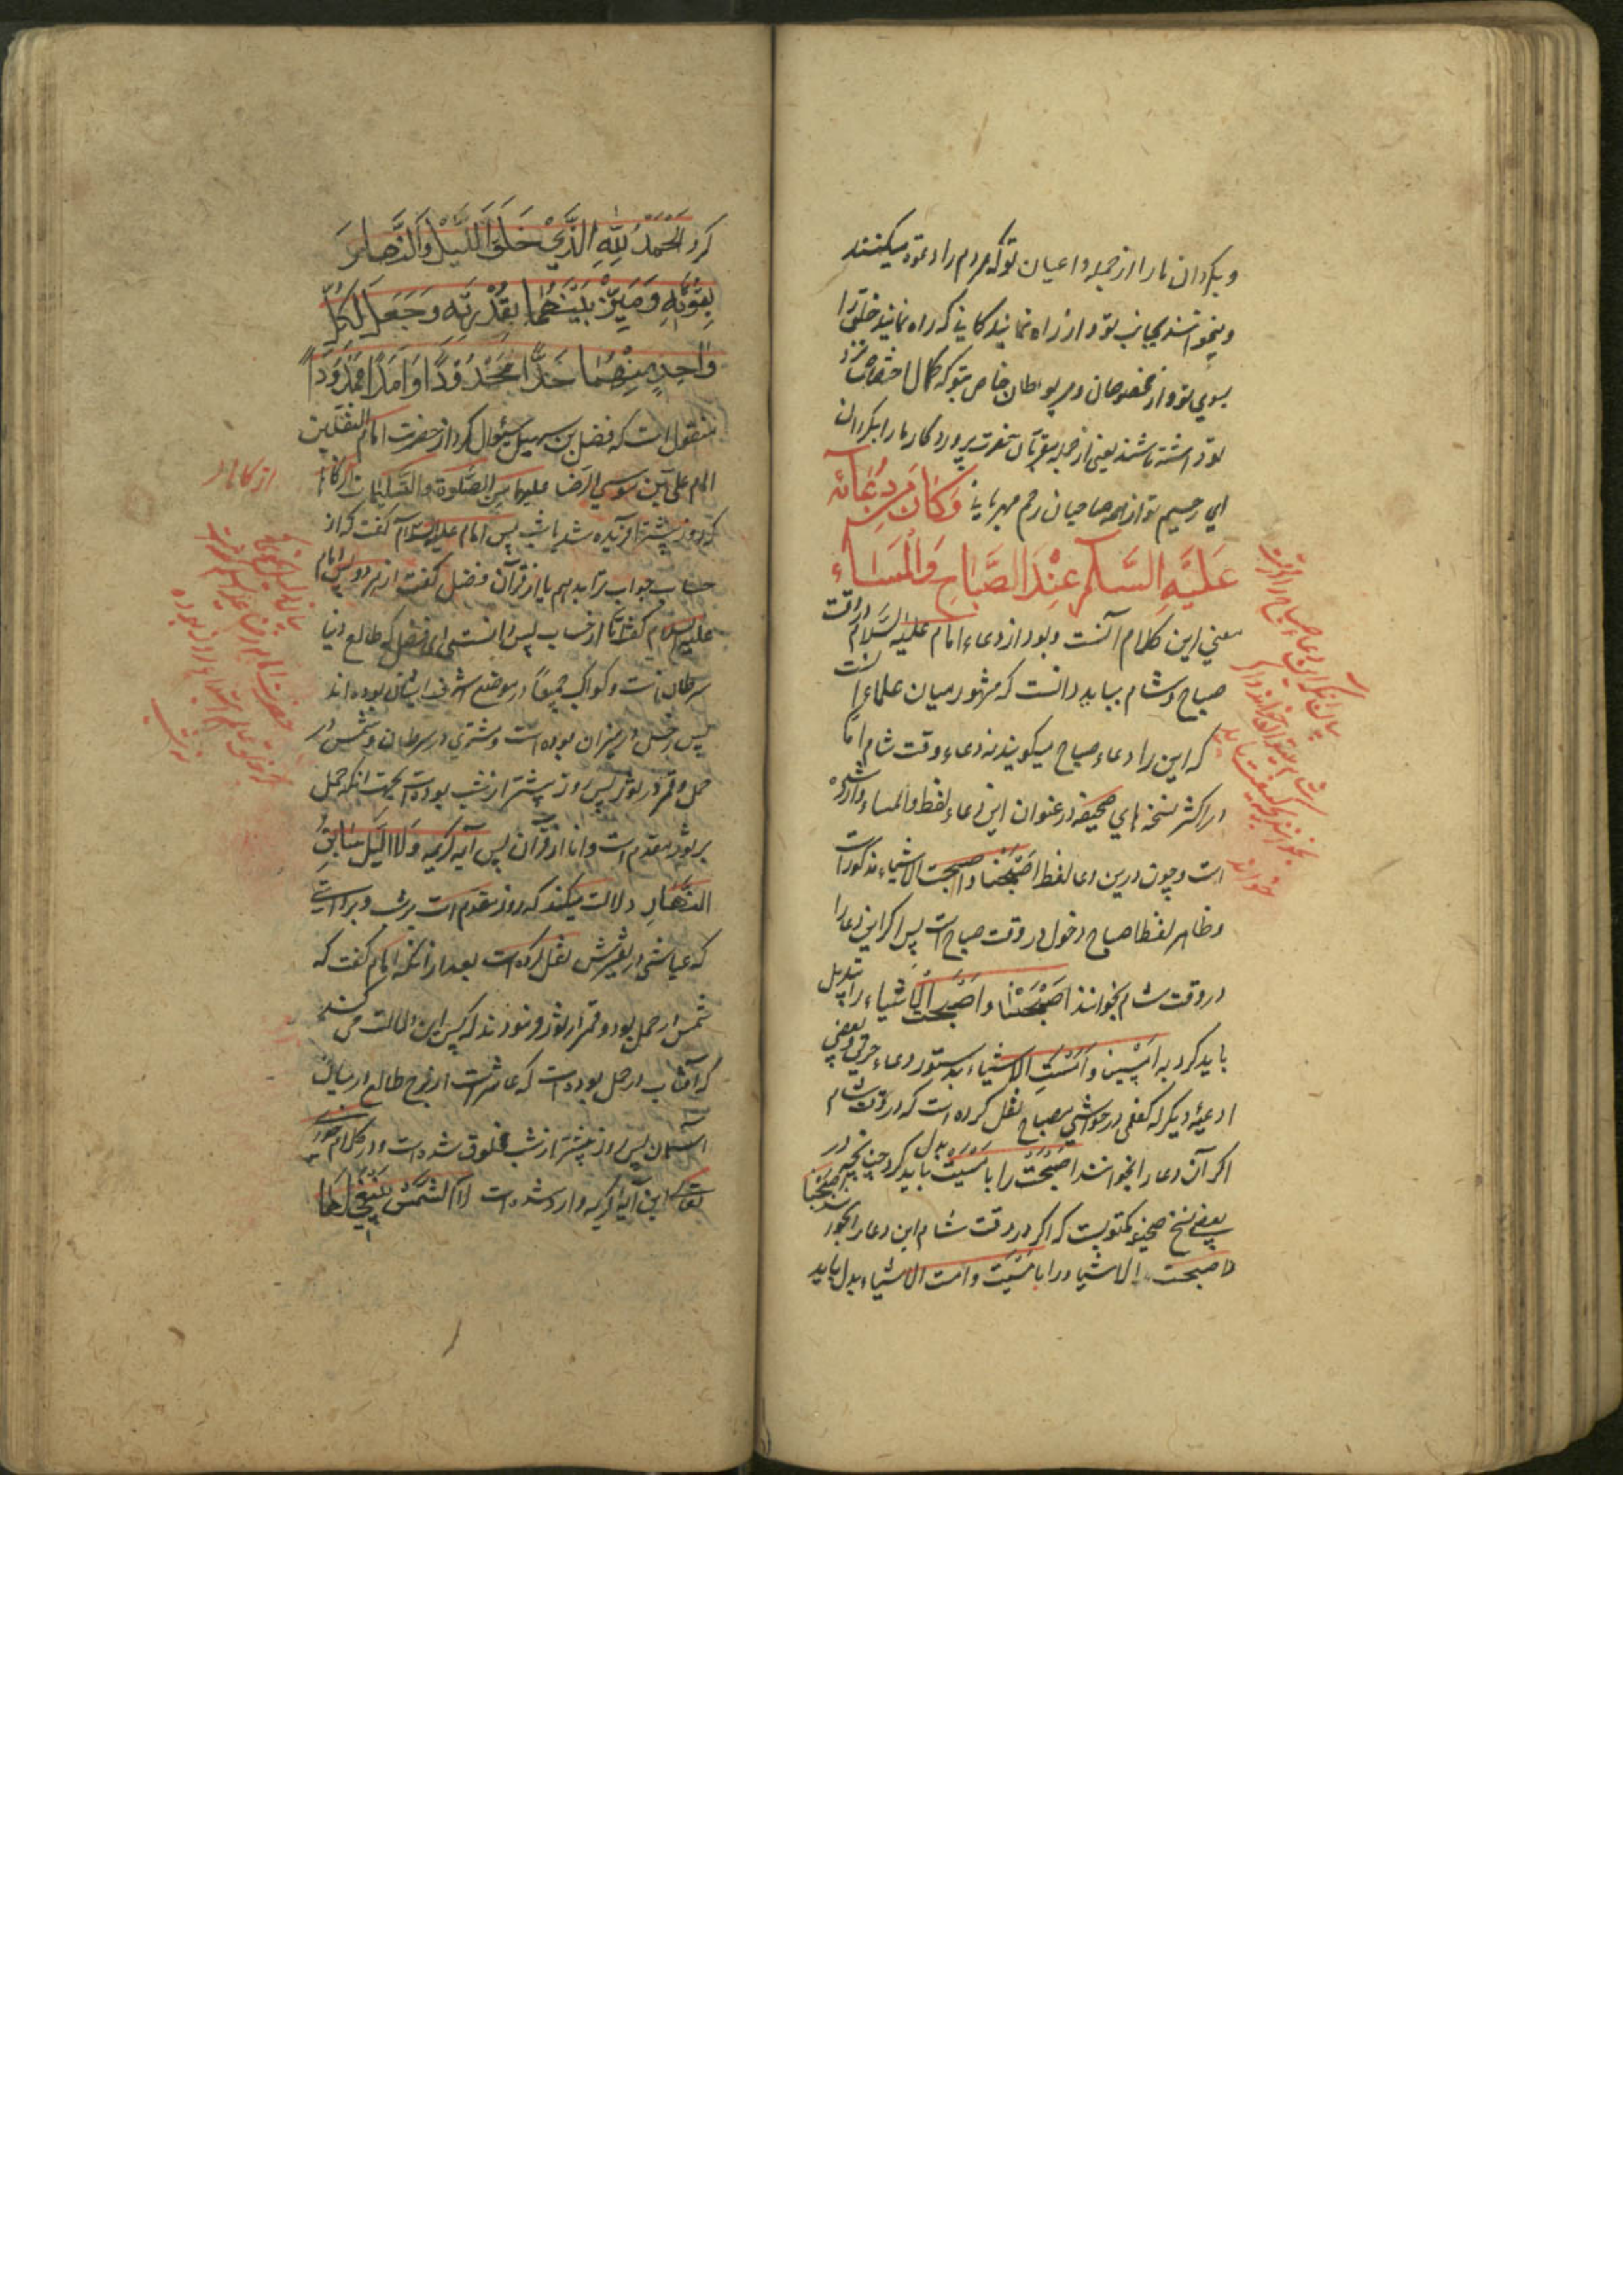 و بگردان ما را از جمله داعیان تو که مردم را دعوة میکنند
و میخوانند بجانب تو و از راه نمایندکانی که راه نمایند خلق را
بسوی تو و از مخصوصان و مربوطان خاص بتو که کمال اختصاص نزد
تو داشته باشند یعنی از جمله مقربان حضرت پروردکار ما را بکردان
ای رحیم تو از همه صاحبان رحم مهربانی وَكَانَ مِنْ دُعَائِهِ
عَلَيْهِ السَّلَام عِنْدَ الصَّبَاحِ وَالْمَسَاء
معنی این کلام آنست و بود از دعاء امام علیه السلام در وقت
صباح و شام بباید دانست که مشهور میان علماء آنست
که این را دعاء صباح میکویند نه دعاء وقت شام امّا
در اکثر نسخه های صحیفه در عنوان این دعاء لفظ والمساء وارد شده
است و چون درین دعا لفظ اَصْبَحْنا و اصبحت الاشیاء مذکور است
و ظاهر لفظ اصباح دخول در وقت صباح است پس اکر این دعا را
در وقت شام بخوانند اَصْبَحْنَا و اَصْبَحَت الْأشیاء را تبدیل
باید کرد به اَمْسَیْنا و اَمْسَتِ الاشیاء بدستور دعاء حریق و بعضی
ادعیۀ دیکر که کفعمی در حواشی مصباح نقل کرده است که در وقت شام
اکر آن دعا را بخوانند اَصْبَحْتُ را با مْسَیْتُ بدل باید کرد چنانچه در
بعضی نسخ صحیفه مکتوبست که اکر در وقت شام این دعا را بخوانند اصبحنا
و اصبحت الاشیاء را با مْسَیْت و امست الاشیاء بدل باید
کرد اَلْحَمْدُ لِلّٰهِ الَّذِي خَلَقَ اللَّيْلَ وَالنَّهَارَ
بِقُوَّتِهِ وَمَيَّزَ بَيْنَهُمَا بِقُدْرَتِهِ وَجَعَلَ لِكُلِّ
وَاحِدٍ مِنْهُمَا حَدًّا مَحْدُودًا وَاَمَدًا مَمْدُودًا
منقول است که فضل بن سهیل سؤال کرد از حضرت امام الثقلین
امام علی بن موسی الرضا علیهما من الصلوة والتسلیمات ازکاها
که روز پیشتر آفریده شد یا شب پس امام علیه السلام کفت که از
حساب جواب ترا بدهم یا از قرآن فضل کفت از هر دو پس امام
علیه السلام کفت امّا از حساب پس دانسته ای فضل که طالع دنیا
سرطانست و کواکب جمیعاً در موضع شرف ایشان بوده اند
پس زحل در میزان بوده است و مشتری در سرطان و شمس در
حمل و قمر در ثور پس روز پیشتر از شب بوده است بجهت انکه حمل
بر ثور مقدم است و اما از قرآن پس آیه کریمه وَلَا اللَّيْلُ سَابِقُ
النَّهَارِ دلالت میکند که روز مقدم است بر شب و بروایتی
که عیاشی در تفسیرش نقل کرده است بعد از آنکه امام کفت که
شمس در حمل بود و قمر در ثور فرمودند که پس این دلالت می کند
که آفتاب در حمل بوده است که عاشر است از برج طالع در میان
آسمان پس روز پیشتر از شب مخلوق شده است و در کلام
تعالی این آیه کریمه وارد شده است لَا الشَّمْسُ يَنْبَغِي لَهَا